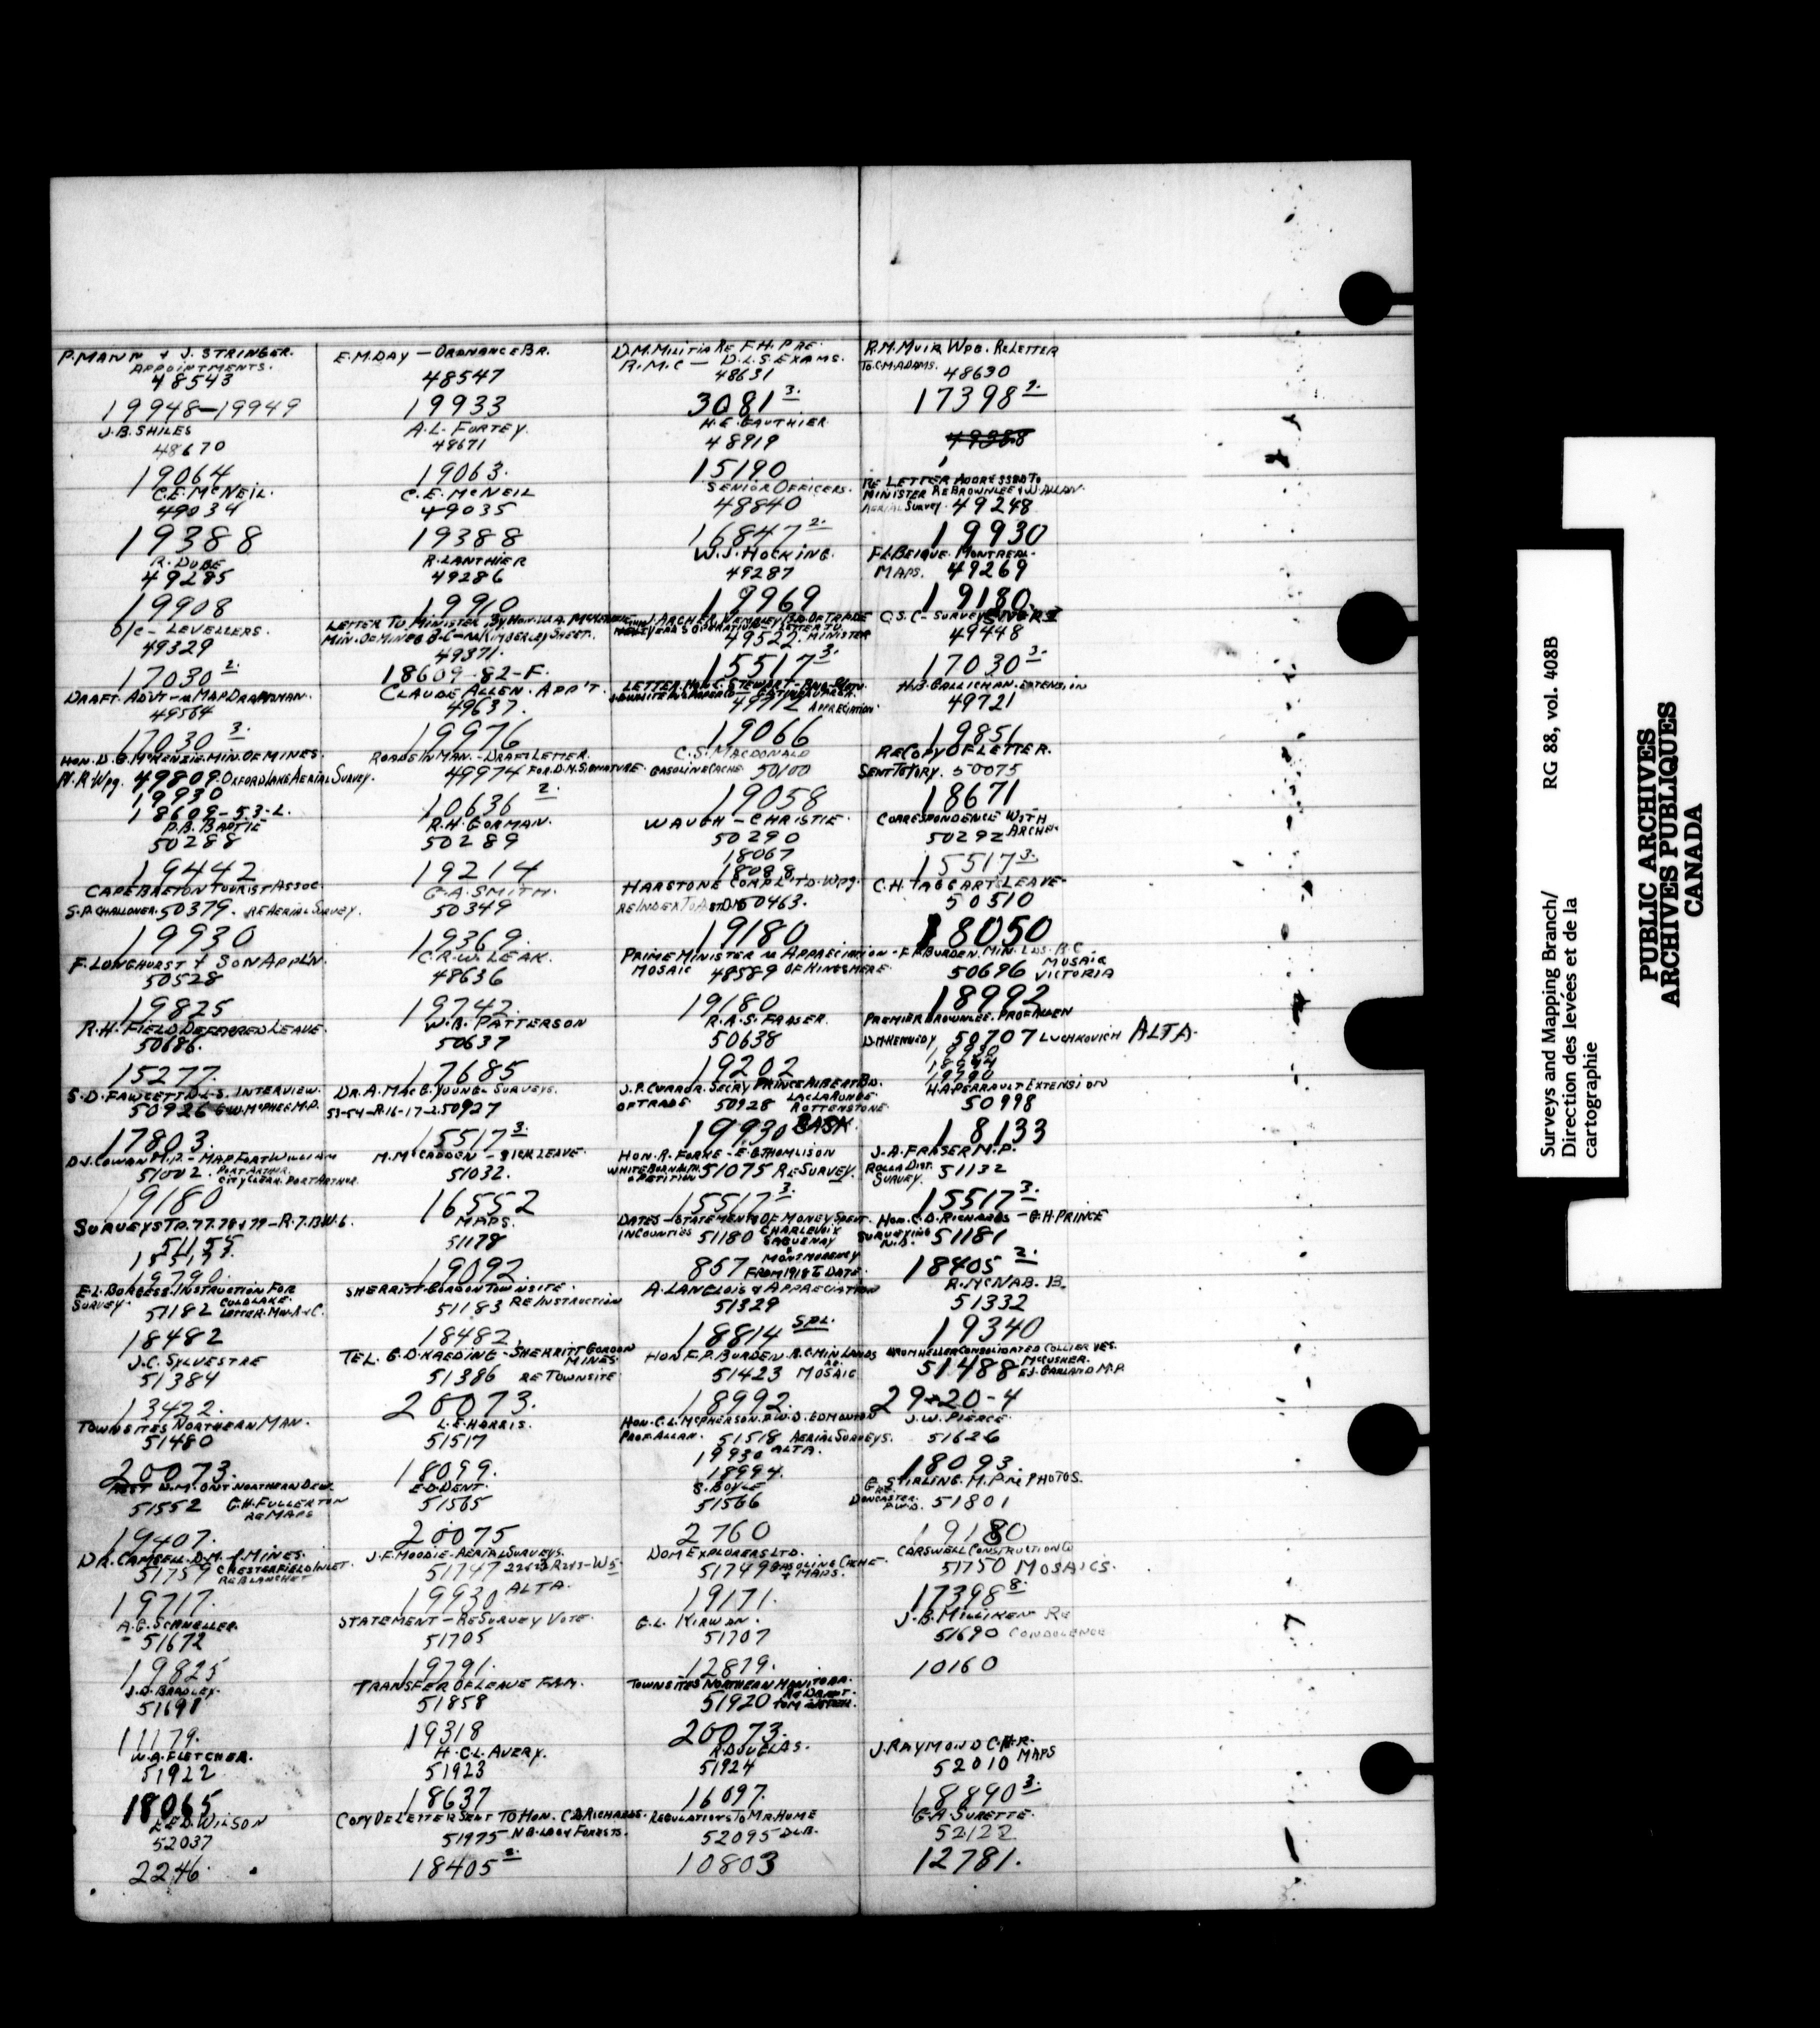 P. MANN & J. STRINGER.
APPOINTMENTS.
48543
19948-19949
E.M. DAY - ORDNANCE BR.
48547
19933
D.M. MILITIA RE F.H. PRE.
R.M.C - D.L.S. EXAMS.
48631
3081 3.
R.M. MUIR WPG. RE LETTER
TO C.M. ADAMS. 48630
17398 2.
J.B. SHILES
48670
19064
A.L. FORTEY.
48671
19063.
H.E. GAUTHIER.
48919
15190
49388
C.E. McNEIL.
49034
19388
C.E. McNEIL
49035
19388
SENIOR OFFICERS.
48840
16847 2.
RE LETTER ADDRESSED TO
MINISTER RE BROWNLEE & W. ALLAN.
AERIAL SURVEY. 49248
19930
R. DUBE
49285
19908
R. LANTHIER
49286
19910
W.J. HOCKING.
49287
19969
F.L. BEIQUE. MONTREAL.
MAPS. 49269
19180.
O/C - LEVELLERS.
49329
17030 2.
LETTER TO MINISTER BY HON. W.A. McKENZIE
MIN. OF MINES B-C - RE KIMBERLEY SHEET.
49371.
18609-82-F.
J. ARCHER WEMBLEY BD. OF TRADE
LETTER TO
49522. MINISTER
15517 3.
C.S.C - SURVEY
49448
17030 3.
DRAFT. ADVT - RE MAP DRAFTSMAN.
49564
17030 3.
CLAUDE ALLEN. APP'T.
49637.
19976
LETTER. HON. C. STEWART -
APPRECIATION.
19066
H.B. GALLICHAN. EXTENSION
49721
19851
HON. D.G. McKENZIE. MIN. OF MINES.
N.R. Wpg. 49809. OXFORD LAKE AERIAL SURVEY.
19930
18609-53-L.
ROADS IN MAN. - DRAFT LETTER.
49974 FOR D.M. SIGNATURE.
10636 2.
C.S. MACDONALD
GASOLINE CACHE 50100
19058
RE COPY OF LETTER.
SENT TO TORY. 50075
18671
P.B. BAPTIE
50288
19442
R.H. GORMAN.
50289
19214
WAUGH - CHRISTIE.
50290
18067
18098
CORRESPONDENCE WITH
50292 ARCHER
15517 3.
CAPE BRETON TOURIST ASSOC.
S.P. CHALLONER. 50379. RE AERIAL SURVEY.
19930
G.A. SMITH.
50349
19369.
HARSTONE COMPL'TD. Wpg.
RE INDEX TO AST DM 50463.
19180
C.H. TAGGART LEAVE.
50510
18050
F. LONGHURST & SON APPL'N.
50528
19825
C.R.W. LEAK.
48636
19742.
PRIME MINISTER RE APPRECIATION
MOSAIC 48589 OF KINGSMERE.
19180
F.P. BURDEN. MIN. LDS. B.C.
50696 MOSAIC
VICTORIA
18992
R.H. FIELD DEFERRED LEAVE.
50686.
15277.
W.B. PATTERSON
50637
17685
R.A.S. FRASER.
50638
19202
PREMIER BROWNLEE. PROF ALLEN
D.M. KENNEDY 50707 LUCHKOVICH ALTA.
19930
18994
19790
S.D. FAWCETT D.L.S. INTERVIEW.
50926 G.W. McPHEE M.P.
17803.
DR. A. MACG. YOUNG - SURVEYS.
53-54-R.16-17-2. 50927
15517 3.
J.P. CURROR. SECRY PRINCE ALBERT BD.
OF TRADE 50928 LAC LA RONGE.
ROTTENSTONE.
19930 SASK.
H.A. PERRAULT EXTENSION
50998
18133
D.J. COWAN M.P. - MAP FORT WILLIAM
51002. PORT ARTHUR.
CITY CLERK. PORT ARTHUR.
19180
M. McCADDEN - SICK LEAVE.
51032.
16552
HON. R. FORKE - E.G. THOMLISON
& PETITION 51075 RE SURVEY.
15517 3.
J.A. FRASER M.P.
ROLLA DIST. 51132
SURVEY.
15517 3.
SURVEYS TP. 77.78 & 79 - R.7.13.W.6.
51155
15517 3.
19790.
MAPS.
51178
19092.
DATES - STATEMENTS OF MONEY SPENT.
IN COUNTIES 51180 CHARLEVOIX
SAGUENAY
& MONTMORENCY
867 FROM 1918 TO DATE.
HON. C.D. RICHARDS - G.H. PRINCE
SURVEYING 51181
N.B.
18405 2.
E.L. BURGESS. INSTRUCTION FOR
SURVEY. 51182 COLD LAKE.
LETTER. MIN. A & C.
18482
SHERRITT-GORDON TOWNSITE.
51183 RE/INSTRUCTION
18482.
A. LANGLOIS & APPRECIATION
51329
18814 SPL.
R. McNAB. B.
51332
19340
J.C. SYLVESTRE
51384
13422.
TEL. G.D. KAEDING - SHERRITT GORDON
MINES.
51386 RE TOWNSITE
20073.
HON F.P. BURDEN. B.C. MIN LANDS
51423 MOSAIC
18992.
DRUMHELLER CONSOLIDATED COLLIERIES.
51488 McCUSKER.
E.J. GARLAND M.P.
29-20-4
TOWNSITES NORTHERN MAN.
51480
20073.
L.E. HARRIS.
51517
18099.
HON. C.L. McPHERSON. P.W.D. EDMONTON
PROF. ALLAN. 51518 AERIAL SURVEYS.
19930 ALTA.
18994.
J.W. PIERCE.
51626
18093.
ONT. NORTHERN DEV.
51552 G.H. FULLERTON
RE MAPS
19407.
E.D. DENT.
51565
20075
S. BOYLE
51566
2760
G. STIRLING. M.P. RE PHOTOS.
DONCASTER 51801
P.W.D.
19180
DR. CAMSELL. D.M. OF MINES.
51759 CHESTERFIELD INLET.
RE BLANCHET
19717.
J.F. MOODIE - AERIAL SURVEYS.
51747
19930 ALTA.
DOM EXPLORERS LTD.
51749 GASOLINE CACHE.
& MAPS.
19171.
CARSWELL CONSTRUCTION Co
51750 MOSAICS.
17398 8.
A.G. SCHNELLER.
51672
19825
STATEMENT - RE SURVEY VOTE.
51705
19791.
G.L. KIRWAN.
51707
12879.
J.B. MILLIKEN RE
51690 CONDOLENCE
10160
J.D. BRADLEY.
51698
11179.
TRANSFER OF LEAVE FILM.
51858
19318
TOWNSITES NORTHERN MANITOBA.
51920 RE DRAFT.
20073.
W.A. FLETCHER.
51922
18065
H.C.L. AVERY.
51923
18637
R. DOUGLAS.
51924
16097.
J. RAYMOND C.N.R.
52010 MAPS
18890 3.
E.E.D. WILSON
52037
2246.
COPY OF LETTER SENT TO HON. C.D. RICHARDS.
51975 N.B. LANDS FORESTS.
18405 2.
REGULATIONS TO MR. HUME
52095 D.L.B.
10803
G.A. SURETTE.
52122
12781.
Surveys and Mapping Branch/ RG 88, vol. 408B
Direction des levées et de la
cartographie
PUBLIC ARCHIVES
ARCHIVES PUBLIQUES
CANADA